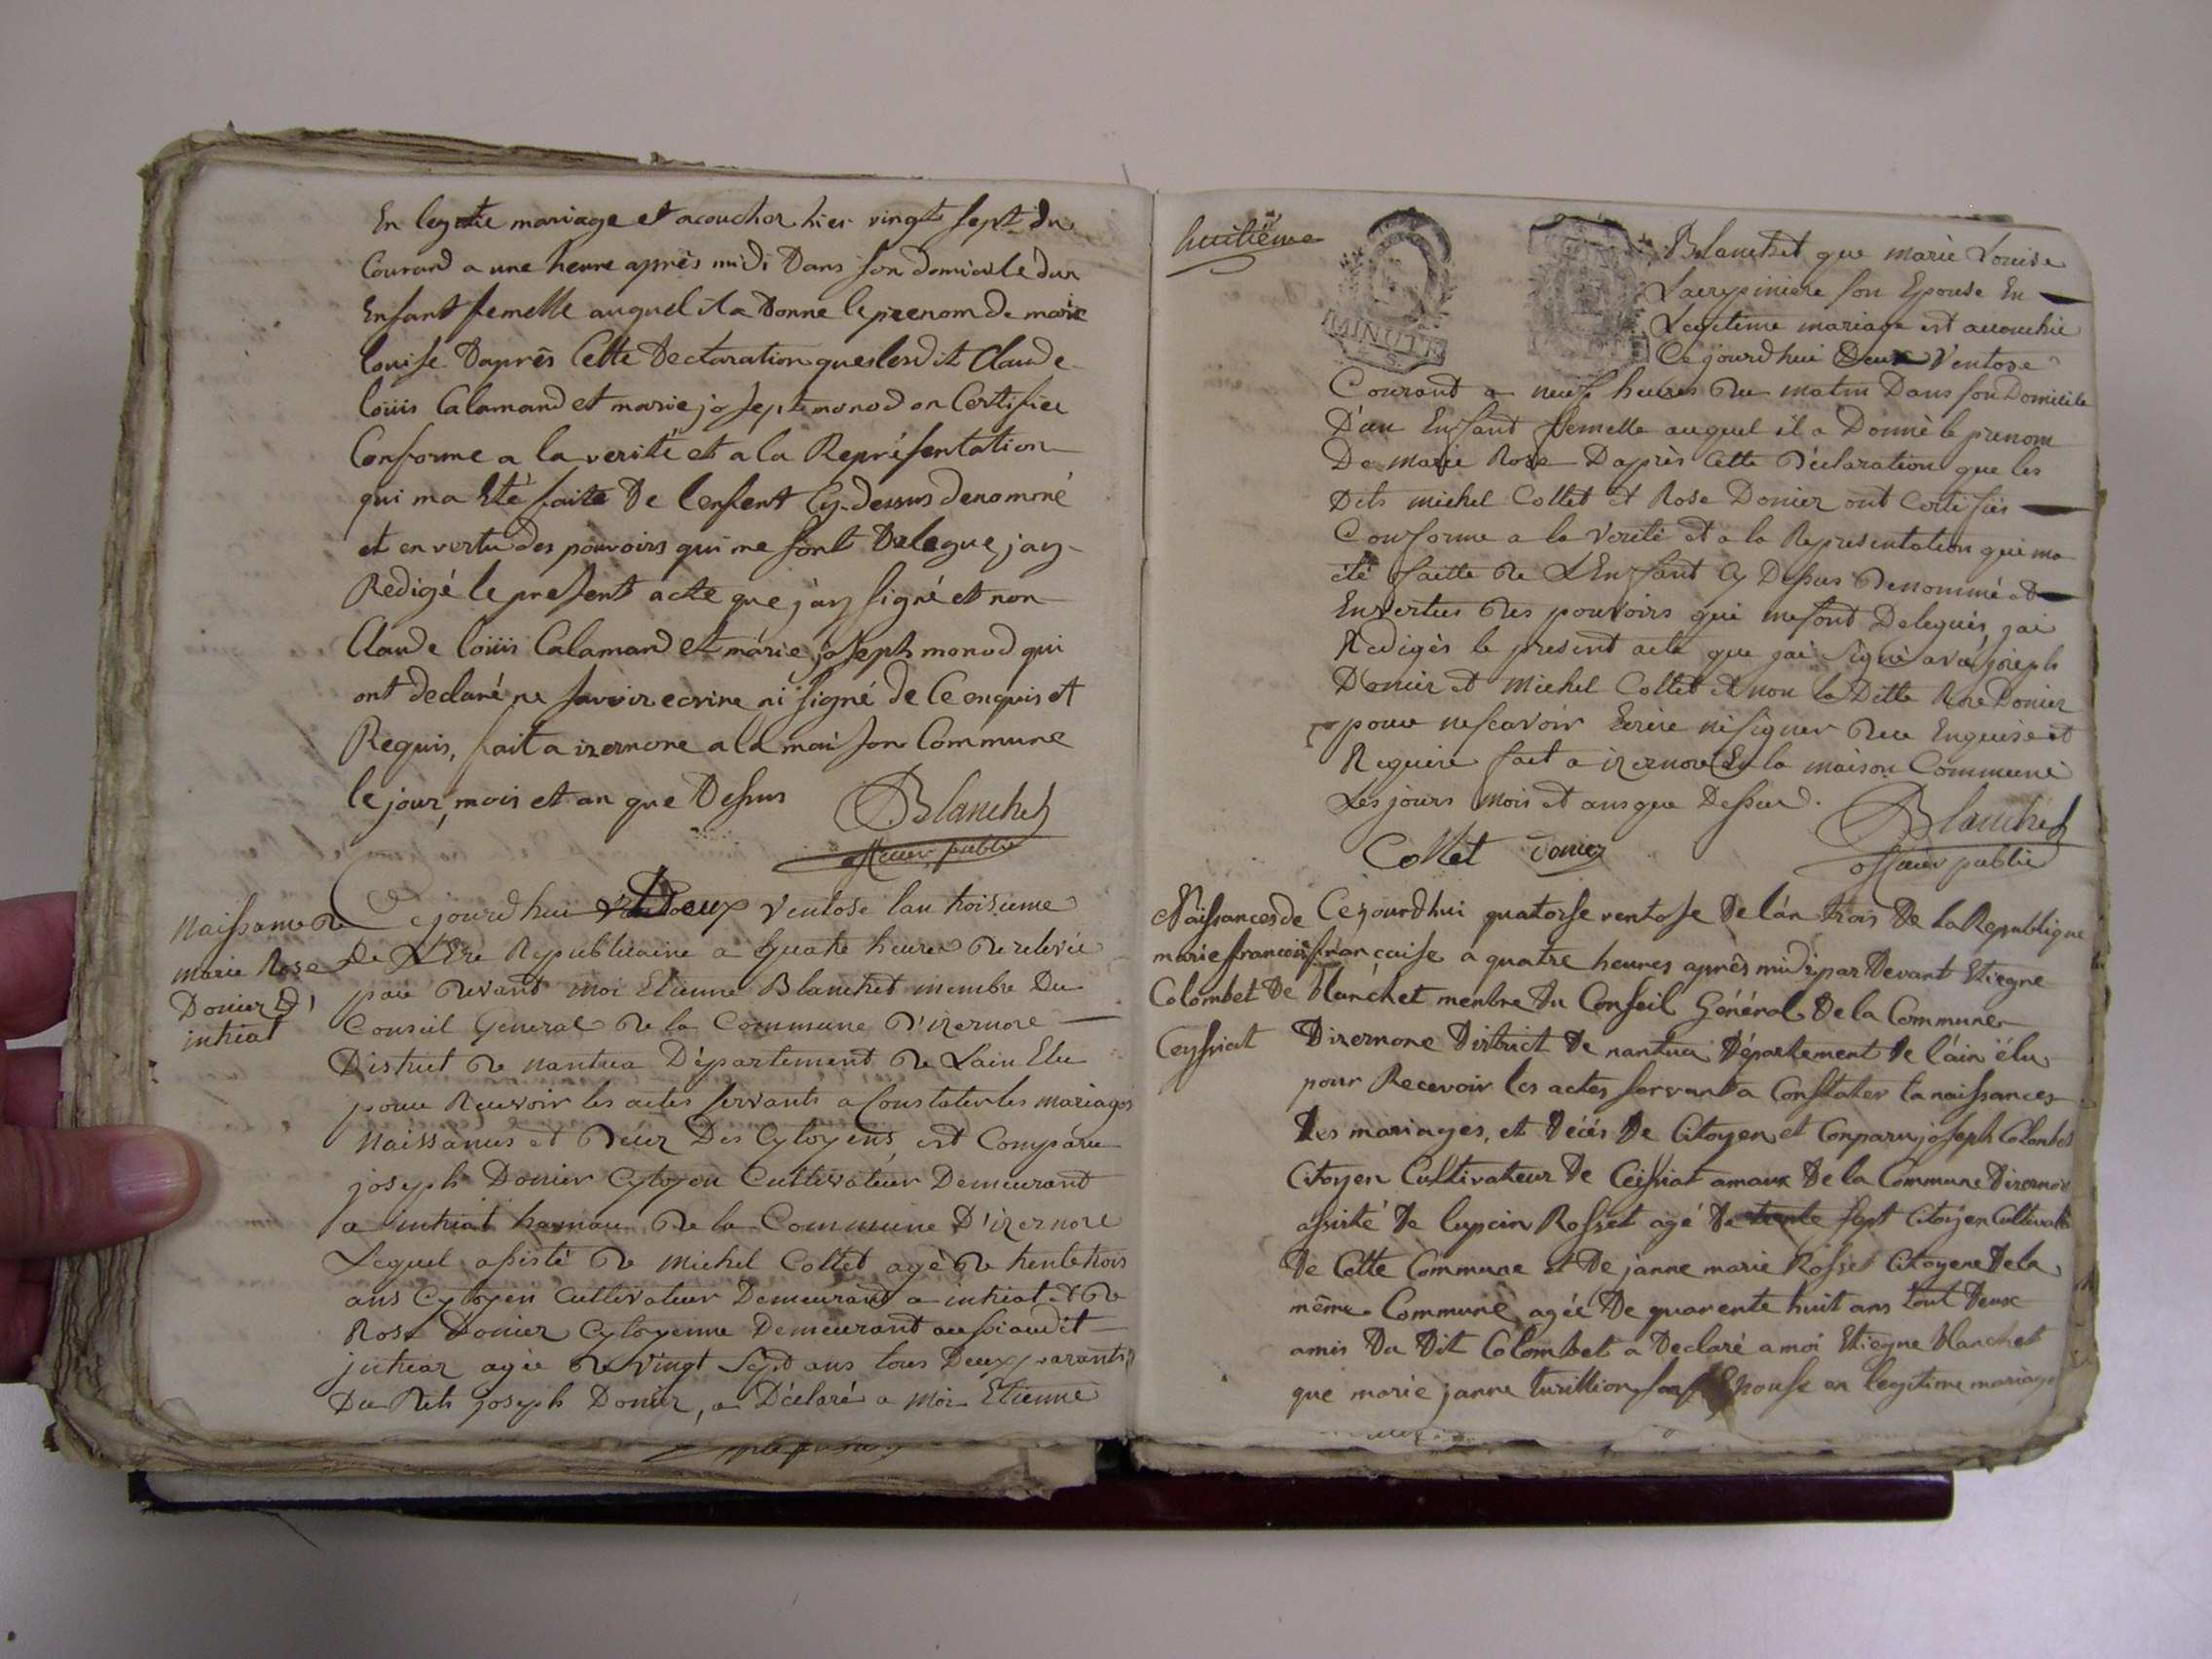 En legtie mariage et acouchor hier vingt sept du
Courand a une heure après midi Dans son domicile dun
Enfant femelle auquel il a Donne le prenom de marie
louise Daprês Cette Dectaration que lesdit Claude
loüis Calamand et marie joseph monod on Certifiee
Conforme a la verité et a la Représentation
qui ma Eté faite De lenfent Cy-dessus denommé
et en vertu des pouvoirs qui me sont Delegue jay
Redigé le present acte que jay signé et non
Claude loüis Calamand et marie joseph monod qui
ont declaré ne savoir ecrire ni signé de Ce enquis et
Requis, fait a izernore a la maison Commune
le jour, mois et an que Dessus
Blanchet
officier public
Naissance de
marie Rose
Donier D'
intriat
Cejourdhui Deux Ventose lan troisieme
de L'Ere Republicaine a quatre heures de relevée
par devant moi Etienne Blanchet membre Du
Conseil General de la Commune D'izernore
District de nantua Département de Lain Elu
pour Recevoir les actes servants a Constater les mariages
Naissances et décez Des Cytoyens, est Comparu
joseph Donier Cytoyen Cultivateur Demeurant
a intriat hamau de la Commune D'izernore
Lequel assisté de Michel Collet agé de trente trois
ans Cytoyen cultivateur Demeurand a intriat et de
Rose Donier Cytoyenne Demeurant aussi audit
intriaz agée de vingt Sept ans tous Deux parants
Du Dits joseph Donier, a Déclaré a Moi Etienne
huitième
MINUTE
Blanchet que marie Louise
son Epouse En
Legitime mariage est accouchée
Cejourdhui Deux Ventose
Courant a neuf heures du matin Dans son Domicile
D'un Enfant femelle auquel il a Donné le prenom
De Marie Rose Daprès Cette déclaration que les
Dits michel Collet et Rose Donier ont Certifiés
Conforme a la Verité et a la Representation qui ma
été faitte de L'Enfant Cy Dessus denommé et
En Vertus des pouvoirs qui me sont Delegués, jai
Redigés le present acte que jai Signé avec joseph
Donier et Michel Collet et non la Ditte Rose Donier
pour ne scavoir Ecrire ni signer de Enquise et
Requise fait a izernore En la maison Commune
Les jours Mois et ans que Dessus.
Blanchet
Collet Donier
officier public
Naissances de
marie francoise
Colombet De
Ceyssiat
Cejourdhui quatorse ventose De lán trois De la Republique
française a quatre heures aprês midi par Devant Etiegne
blanchet menbre Du Conseil Général De la Commune
Dizernore District De nantua Département De l'ain élu
pour Recevoir les actes servant a Constater la naissances
Des mariages, et décés De Citoyen et Conparu joseph Colombet
Citoyen Cultivateur De Ceissiat amaux De la Commune Dizernore
assisté De lupcin Rosset agé De trente sept Citoyen Cultivat
De Cette Commune et De janne marie Rosset Citoyene De la
même Commune agée De quarente huit ans tout Deux
amis Du Dit Colombet a Declaré a moi Etiegne blanchet
que marie janne turillion son Epouse en legitime mariage